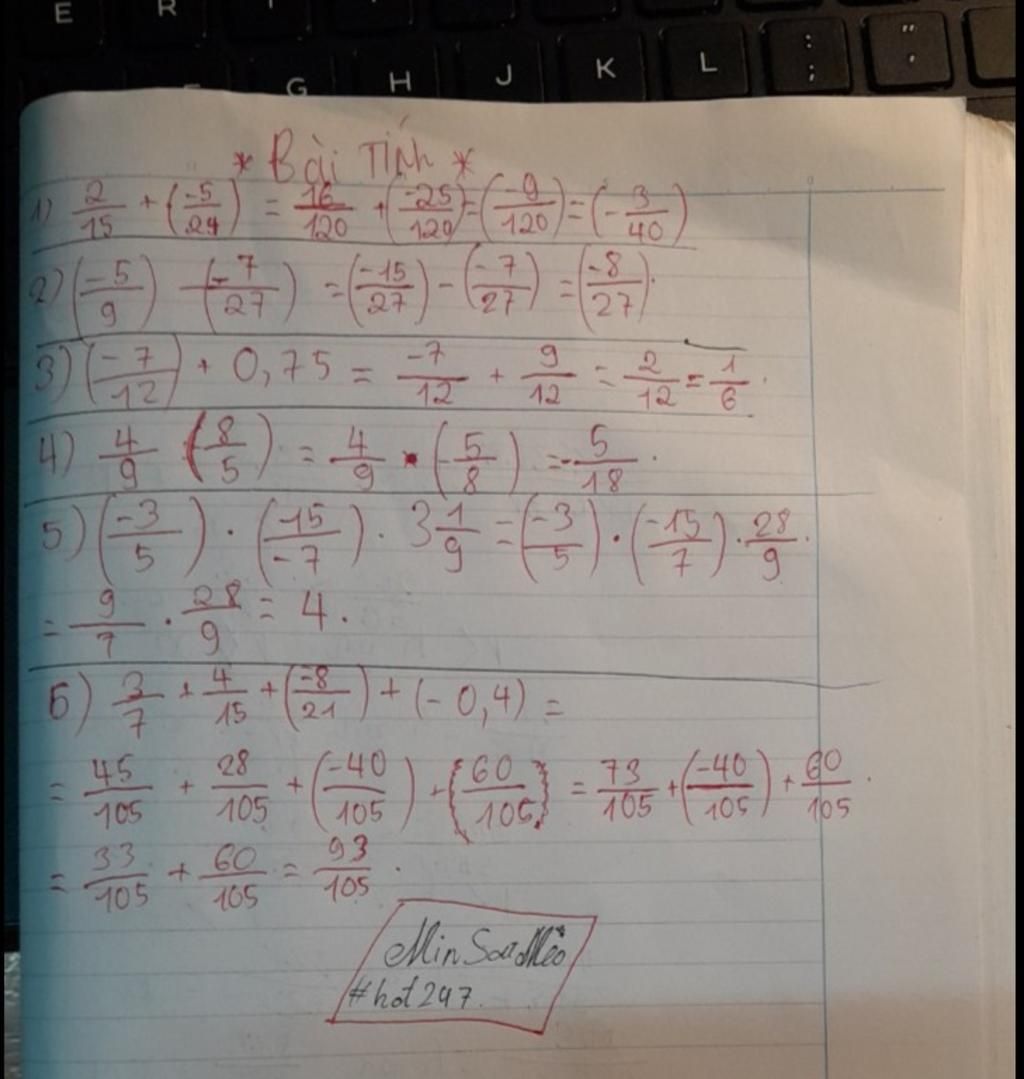 E R
G H J K L : ; " '
* Bài Tính *
1) 2/15 + (-5/24) = 16/120 + (-25/120) = (-9/120) = (-3/40)
2) (-5/9) - (-7/27) = (-15/27) - (-7/27) = (-8/27).
3) (-7/12) + 0,75 = -7/12 + 9/12 = 2/12 = 1/6.
4) 4/9 (8/5) = 4/9 . (-5/8) = -5/18.
5) (-3/5) . (15/-7) . 3 1/9 = (-3/5) . (-15/7) . 28/9.
= 9/7 . 28/9 = 4.
6) 3/7 + 4/15 + (-8/21) + (-0,4) =
= 45/105 + 28/105 + (-40/105) + (60/105) = 73/105 + (-40/105) + 60/105.
= 33/105 + 60/105 = 93/105.
#hot247